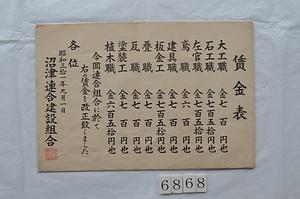 賃金表
大工職 金七百円也
石工職 金七百五拾円也
左官職 金七百五拾円也
鳶職 金六百円也
建具職 金七百円也
板金工 金七百五拾円也
畳職 金七百円也
瓦職 金七百円也
塗装工 金七百円也
植木職 金六百五拾円也
今回連合組合に於て
右の賃金に改正致しました
昭和三十一年九月一日
各位
沼津連合建設組合
6868